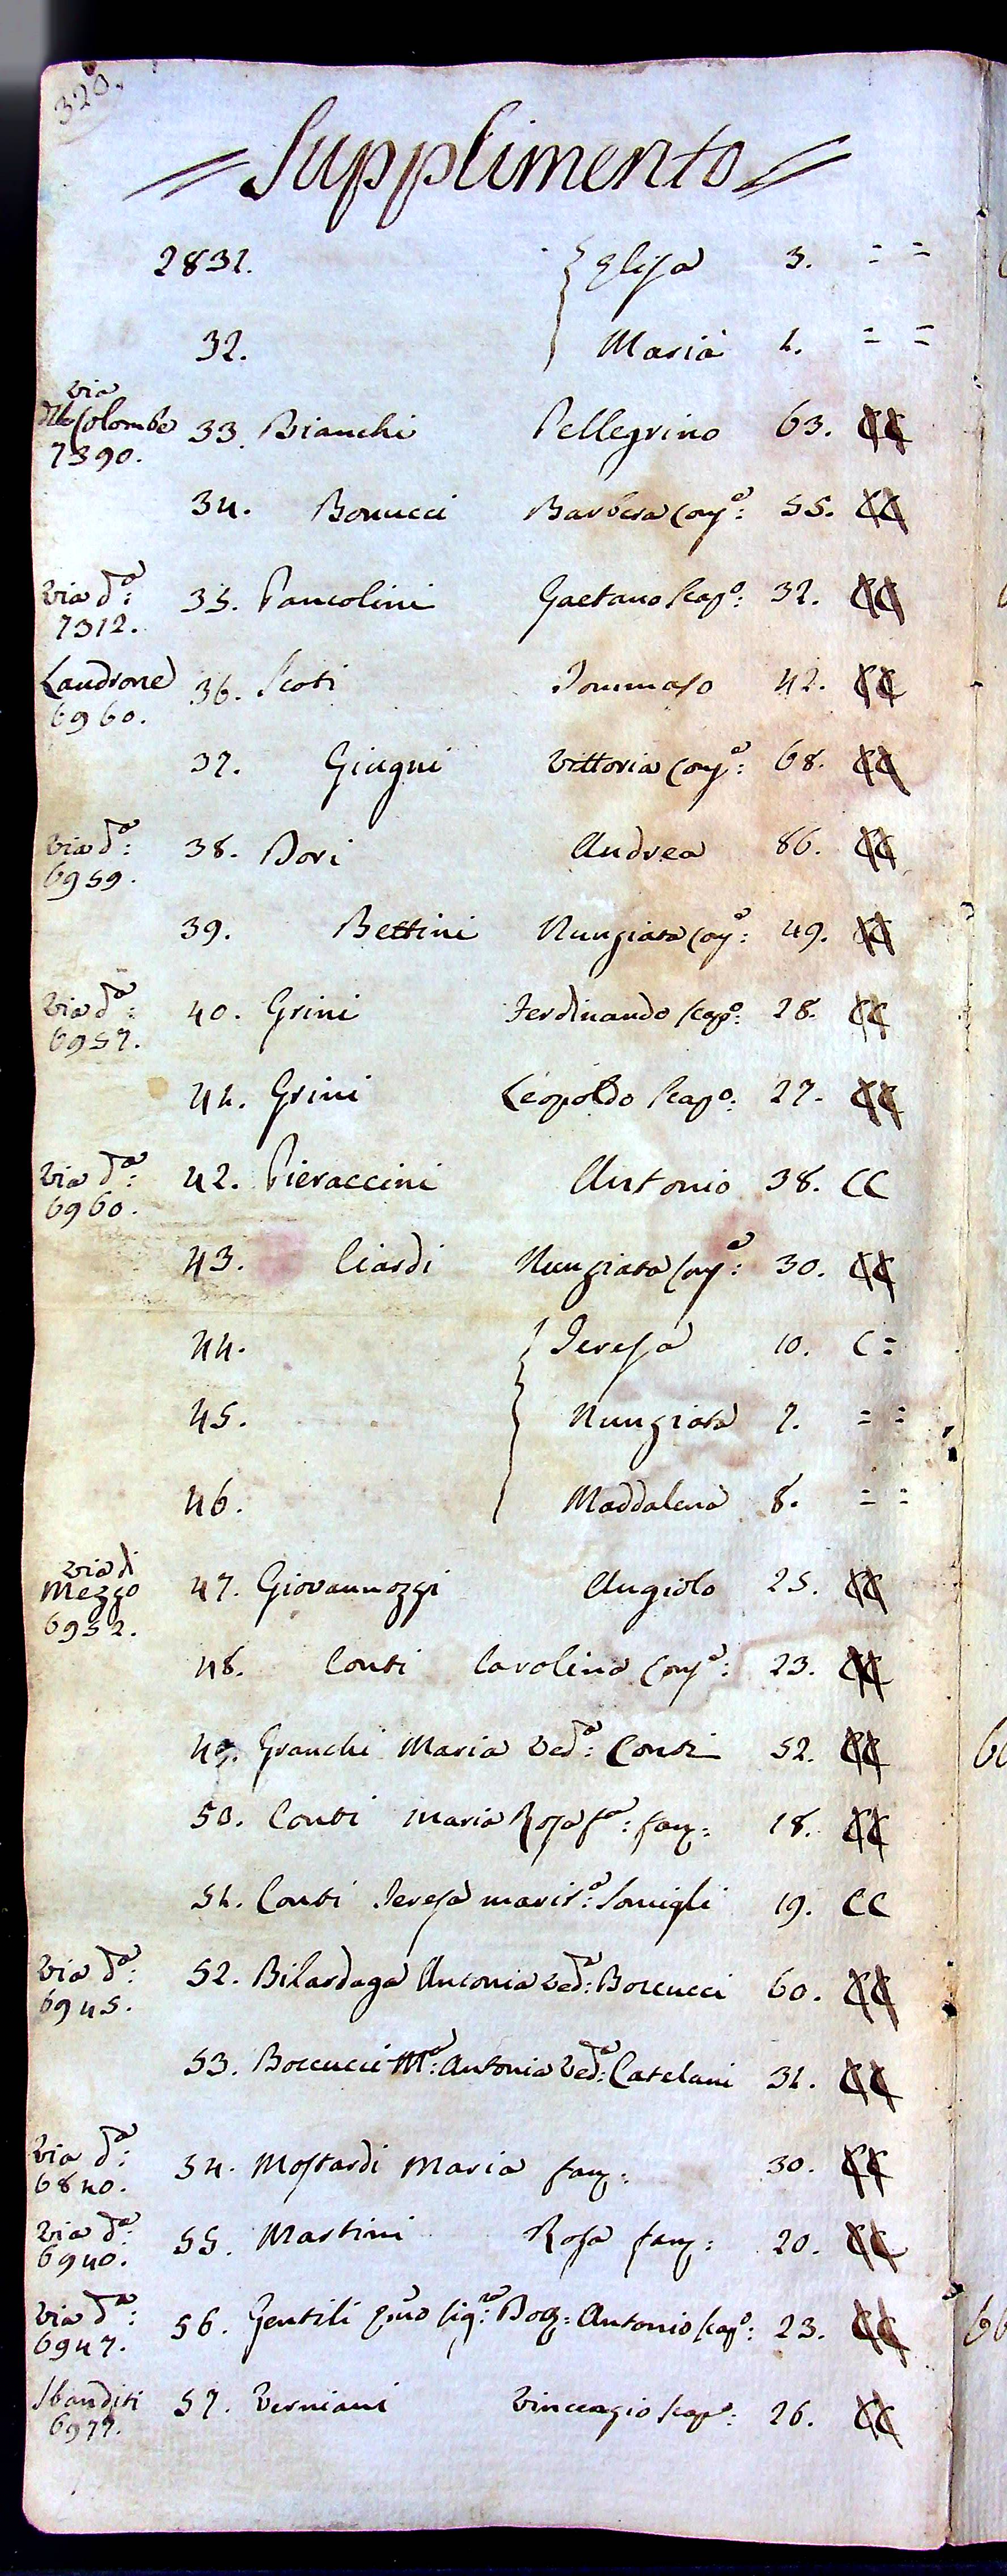 320.
Supplimento
2831. Elisa 3. = =
32. Maria 1. = =
via
delle Colombe 33. Bianchi Pellegrino 63. CC
7390.
34. Bonucci Barbera Conj.ª: 55. CC
via d.ª: 35. Pancolini Gaetano scap.º: 32. CC
7312.
Landrone 36. Scoti Tommaso 42. CC
6960.
37. Giugni Vittoria Conj.ª: 68. CC
via d.ª: 38. Dori Andrea 86. CC
6959.
39. Bettini Nunziata Conj.ª: 49. CC
via d.ª: 40. Grini Ferdinando scap.º: 28. CC
6957.
41. Grini Leopoldo scap.º: 27. CC
via d.ª: 42. Pieraccini Antonio 38. CC
6960.
43. Ciardi Nunziata Conj.ª: 30. CC
44. Teresa 10. C =
45. Nunziata 7. = =
46. Maddalena 8. = =
via di
Mezzo 47. Giovannozzi Angiolo 25. CC
6952.
48. Conti Carolina Conj.ª: 23. CC
49. Granchi Maria Ved.ª: Conti 52. CC
50. Conti Maria Rosa f.ª: fan: 18. CC
51. Conti Teresa marit.ª: Somigli 19. CC
via d.ª: 52. Bilardaga Antonia Ved.ª: Boccucci 60. CC
6945.
53. Boccucci M.ª: Antonia Ved.ª: Catelani 31. CC
via d.ª: 54. Mostardi Maria fan: 30. CC
6840.
via d.ª: 55. Martini Rosa fan: 20. CC
6940.
via d.ª: 56. Gentili Sig.re: Antonio scap.º: 23. CC
6947.
Sbanditi 57. Verniani Vincenzio scap.º: 26. CC
6977.